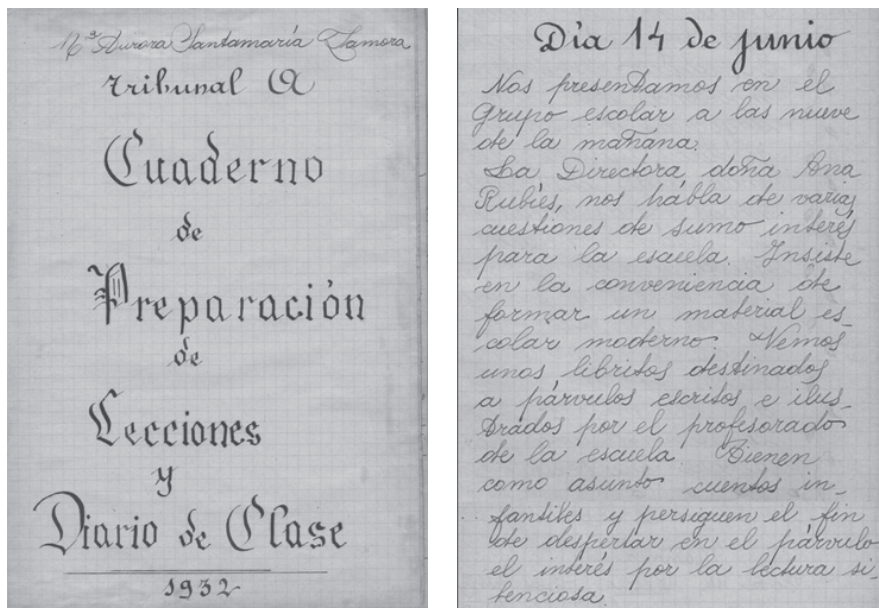 Mª Aurora Santamaría Zamora
Tribunal A
Cuaderno
de
Preparación
de
Lecciones
y
Diario de Clase
1932
Día 14 de junio
Nos presentamos en el
Grupo escolar a las nueve
de la mañana.
La Directora, doña Ana
Rubiés, nos habla de varias
cuestiones de sumo interés
para la escuela. Insiste
en la conveniencia de
formar un material es_
colar moderno. Vemos
unos libritos destinados
a párvulos escritos e ilus_
trados por el profesorado
de la escuela Tienen
como asunto cuentos in_
fantiles y persiguen el fin
de despertar en el párvulo
el interés por la lectura si_
lenciosa.